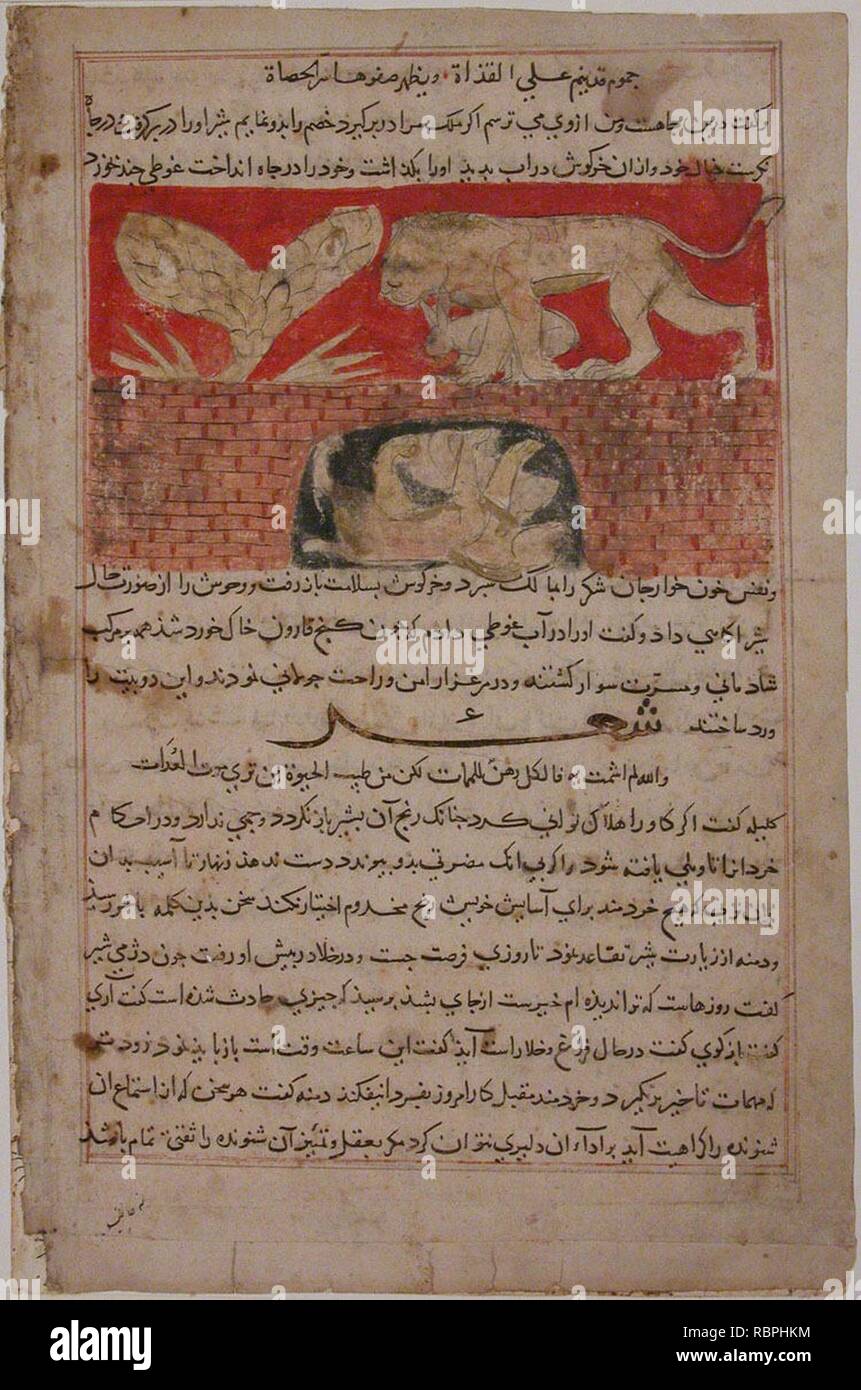 جموم قد ينم علی القذاة ويظهر صفوها سر الحصاة
و گفت درین چاهست و من از وی می ترسم اگر ملک مرا در بر گیرد خصم را بدو نمایم شیر او را در بر گرفت و در چاه
نگریست خیال خود و ازان خرگوش در اب بدید او را بگذاشت و خود را در چاه انداخت غوطی چند خورد
و نفس خون خوار و جان شکر را بمالک سپرد و خرگوش بسلامت باز رفت و وحوش را از صورت حال
شیر اگاهی داد و گفت او را در آب غوطی دادم که چون گنج قارون خاک خورد شد همه بر مرکب
شادمانی و مسرت سوار گشتند و در مرغزار امن و راحت جولانی نمودند و این دو بیت را
ورد ساختند شعر
والله لم اشمت به فالكل رهن للممات لكن من طيب الحيوة ان تری موت العداة
کلیله گفت اگر گاو را هلاک توانی کرد چنانک رنج آن بشیر باز نگردد وجهی دارد و در احکام
خرد انرا تاویلی یافته شود و اگر بی انک مضرتی بدو پیوندد دست ندهد زنهار تا آسیب بدان
نزنی که هیچ خردمند برای آسایش خویش رنج مخدوم اختیار نکند سخن بدین کلمه باخر رسید
و دمنه از زیارت شیر تقاعد نمود تا روزی فرصت جست و در خلا پیش او رفت چون دژمی شیر
گفت روزهاست که ترا ندیده ام خیر هست ازجای بشد پرسید که چیزی حادث شده است گفت آری
گفت باز گوی گفت در حال فراغ و خلا راست آید گفت این ساعت وقت است باز باید نمود زودتر
که مهمات تاخیر بر نگیرد و خردمند مقبل کار امروز بفردا نیفکند دمنه گفت هر سخن که از استماع ان
شنونده را کراهیت آید بر اداء ان دلیری نتوان کرد مگر بعقل و تمییز آن شنونده را ثقتی تمام باشد
alamy stock photo
alamy
Image ID: RBPHKM
www.alamy.com